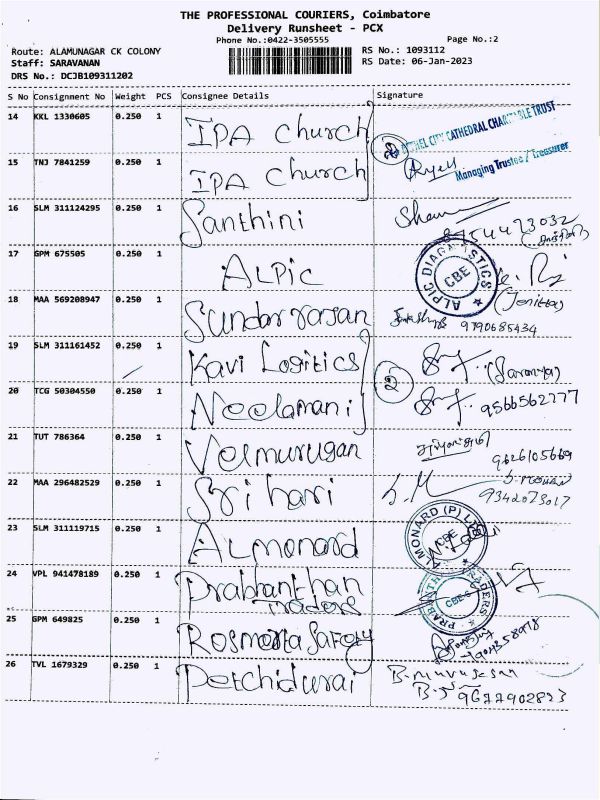 THE PROFESSIONAL COURIERS, Coimbatore
Delivery Runsheet - PCX
Phone No.:0422-3505555 Page No.:2
Route: ALAMUNAGAR CK COLONY RS No.: 1093112
Staff: SARAVANAN RS Date: 06-Jan-2023
DRS No.: DCJB109311202
S No Consignment No Weight PCS Consignee Details Signature
14 KKL 1330605 0.250 1 IPA Church CATHEDRAL CHARITABLE TRUST
15 TNJ 7841259 0.250 1 IPA Church Managing Trustee / Treasurer
16 SLM 311124295 0.250 1 Santhini
17 GPM 675505 0.250 1 ALPIC ALPIC DIAGNOSTICS CBE
18 MAA 569208947 0.250 1 Sundar rajan 9790685434
19 SLM 311161452 0.250 1 Kavi Logitics (Saranya)
20 TCG 50304550 0.250 1 Neelamani 2 9566562777
21 TUT 786364 0.250 1 Velmurugan 9626105669
22 MAA 296482529 0.250 1 Sri hari 9342073017
23 SLM 311119715 0.250 1 Almonard ALMONARD (P) LTD CBE
24 VPL 941478189 0.250 1 Prabhanthan Traders TRADERS CBE
25 GPM 649825 0.250 1 Rosmerta Safety
26 TVL 1679329 0.250 1 Petchidurai B. murugesan
9677902833